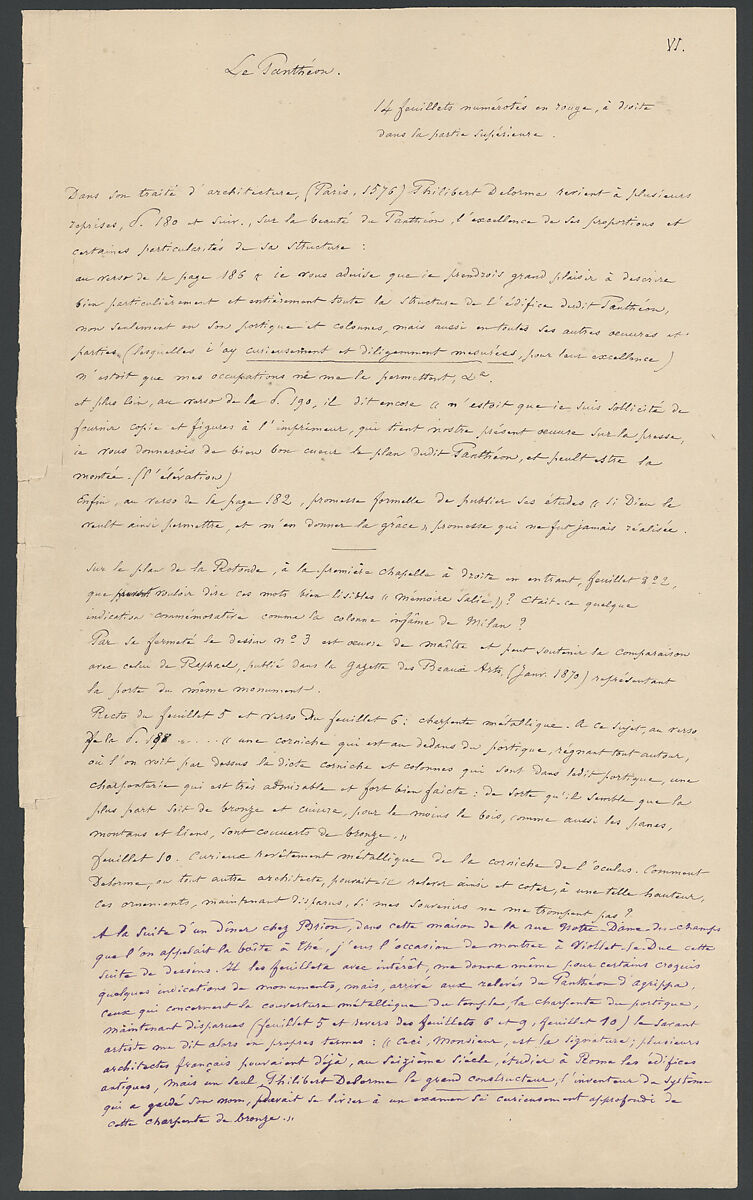 VI.
Le Panthéon.
14 feuillets numérotés en rouge, à droite
dans la partie supérieure.
Dans son traité d'architecture, (Paris, 1576) Philibert Delorme revient à plusieurs
reprises, p. 180 et suiv., sur la beauté du Panthéon, l'excellence de ses proportions et
certaines particularités de sa structure :
au verso de la page 186 « ie vous aduise que ie prendrois grand plaisir à descrire
bien particulièrement et entièrement toute la structure de l'édifice dudit Panthéon,
non seulement en son portique et colonnes, mais aussi en toutes ses autres oeuures et
parties (lesquelles i'ay curieusement et diligemment mesurées, pour leur excellence)
n'estoit que mes occupations ne me le permettent, &a.
et plus loin, au verso de la p. 190, il dit encore « n'estoit que ie suis sollicité de
fournir copie et figures à l'imprimeur, qui tient nostre présent oeuure sur la presse,
ie vous donnerois de bien bon cueur le plan dudit Panthéon, et peult estre la
montée. (l'élévation)
Enfin, au verso de la page 182, promesse formelle de publier ses études « si Dieu le
veult ainsi permettre, et m'en donner la grâce », promesse qui ne fut jamais réalisée.
Sur le plan de la Rotonde, à la première chapelle à droite en entrant, feuillet nº 2,
que vouloir dire ces mots bien lisibles « mémoire Salie »? Etait-ce quelque
indication commémorative comme la colonne infâme de Milan ?
Par sa fermeté le dessin nº 3 est oeuvre de maître et peut soutenir la comparaison
avec celui de Raphael, publié dans la Gazette des Beaux Arts, (Janv. 1870) représentant
la porte du même monument.
Recto du feuillet 5 et verso du feuillet 6 : charpente métallique. A ce sujet, au verso
de la p. 188 ..... « une corniche qui est au dedans du portique, régnant tout autour,
où l'on voit par dessus la dicte corniche et colonnes qui sont dans ledit portique, une
charpenterie qui est très admirable et fort bien faicte : de sorte qu'il semble que la
plus part soit de bronze et cuiure, pour le moins le bois, comme aussi les panes,
montans et liens, sont couuerts de bronze. »
feuillet 10. Curieux revêtement métallique de la corniche de l'oculus. Comment
Delorme, ou tout autre architecte, pouvait-il relever ainsi et coter, à une telle hauteur,
ces ornements, maintenant disparus, si mes souvenirs ne me trompent pas ?
A la suite d'un dîner chez Brion, dans cette maison de la rue Notre-Dame-des-champs
que l'on appelait la boîte à thé, j'eus l'occasion de montrer à Viollet-le-Duc cette
suite de dessins. Il les feuilleta avec intérêt, me donna même pour certains croquis
quelques indications de monuments, mais, arrivé aux relevés du Panthéon d'Agrippa,
ceux qui concernent la couverture métallique du temple, la charpente du portique,
maintenant disparues (feuillet 5 et revers des feuillets 6 et 9, feuillet 10) le savant
artiste me dit alors en propres termes : « Ceci, Monsieur, est la signature; plusieurs
architectes français pouvaient déjà, au seizième siècle, étudier à Rome les édifices
antiques, mais un seul Philibert Delorme le grand constructeur, l'inventeur du système
qui a gardé son nom, pouvait se livrer à un examen si curieusement approfondi de
cette charpente de bronze. »